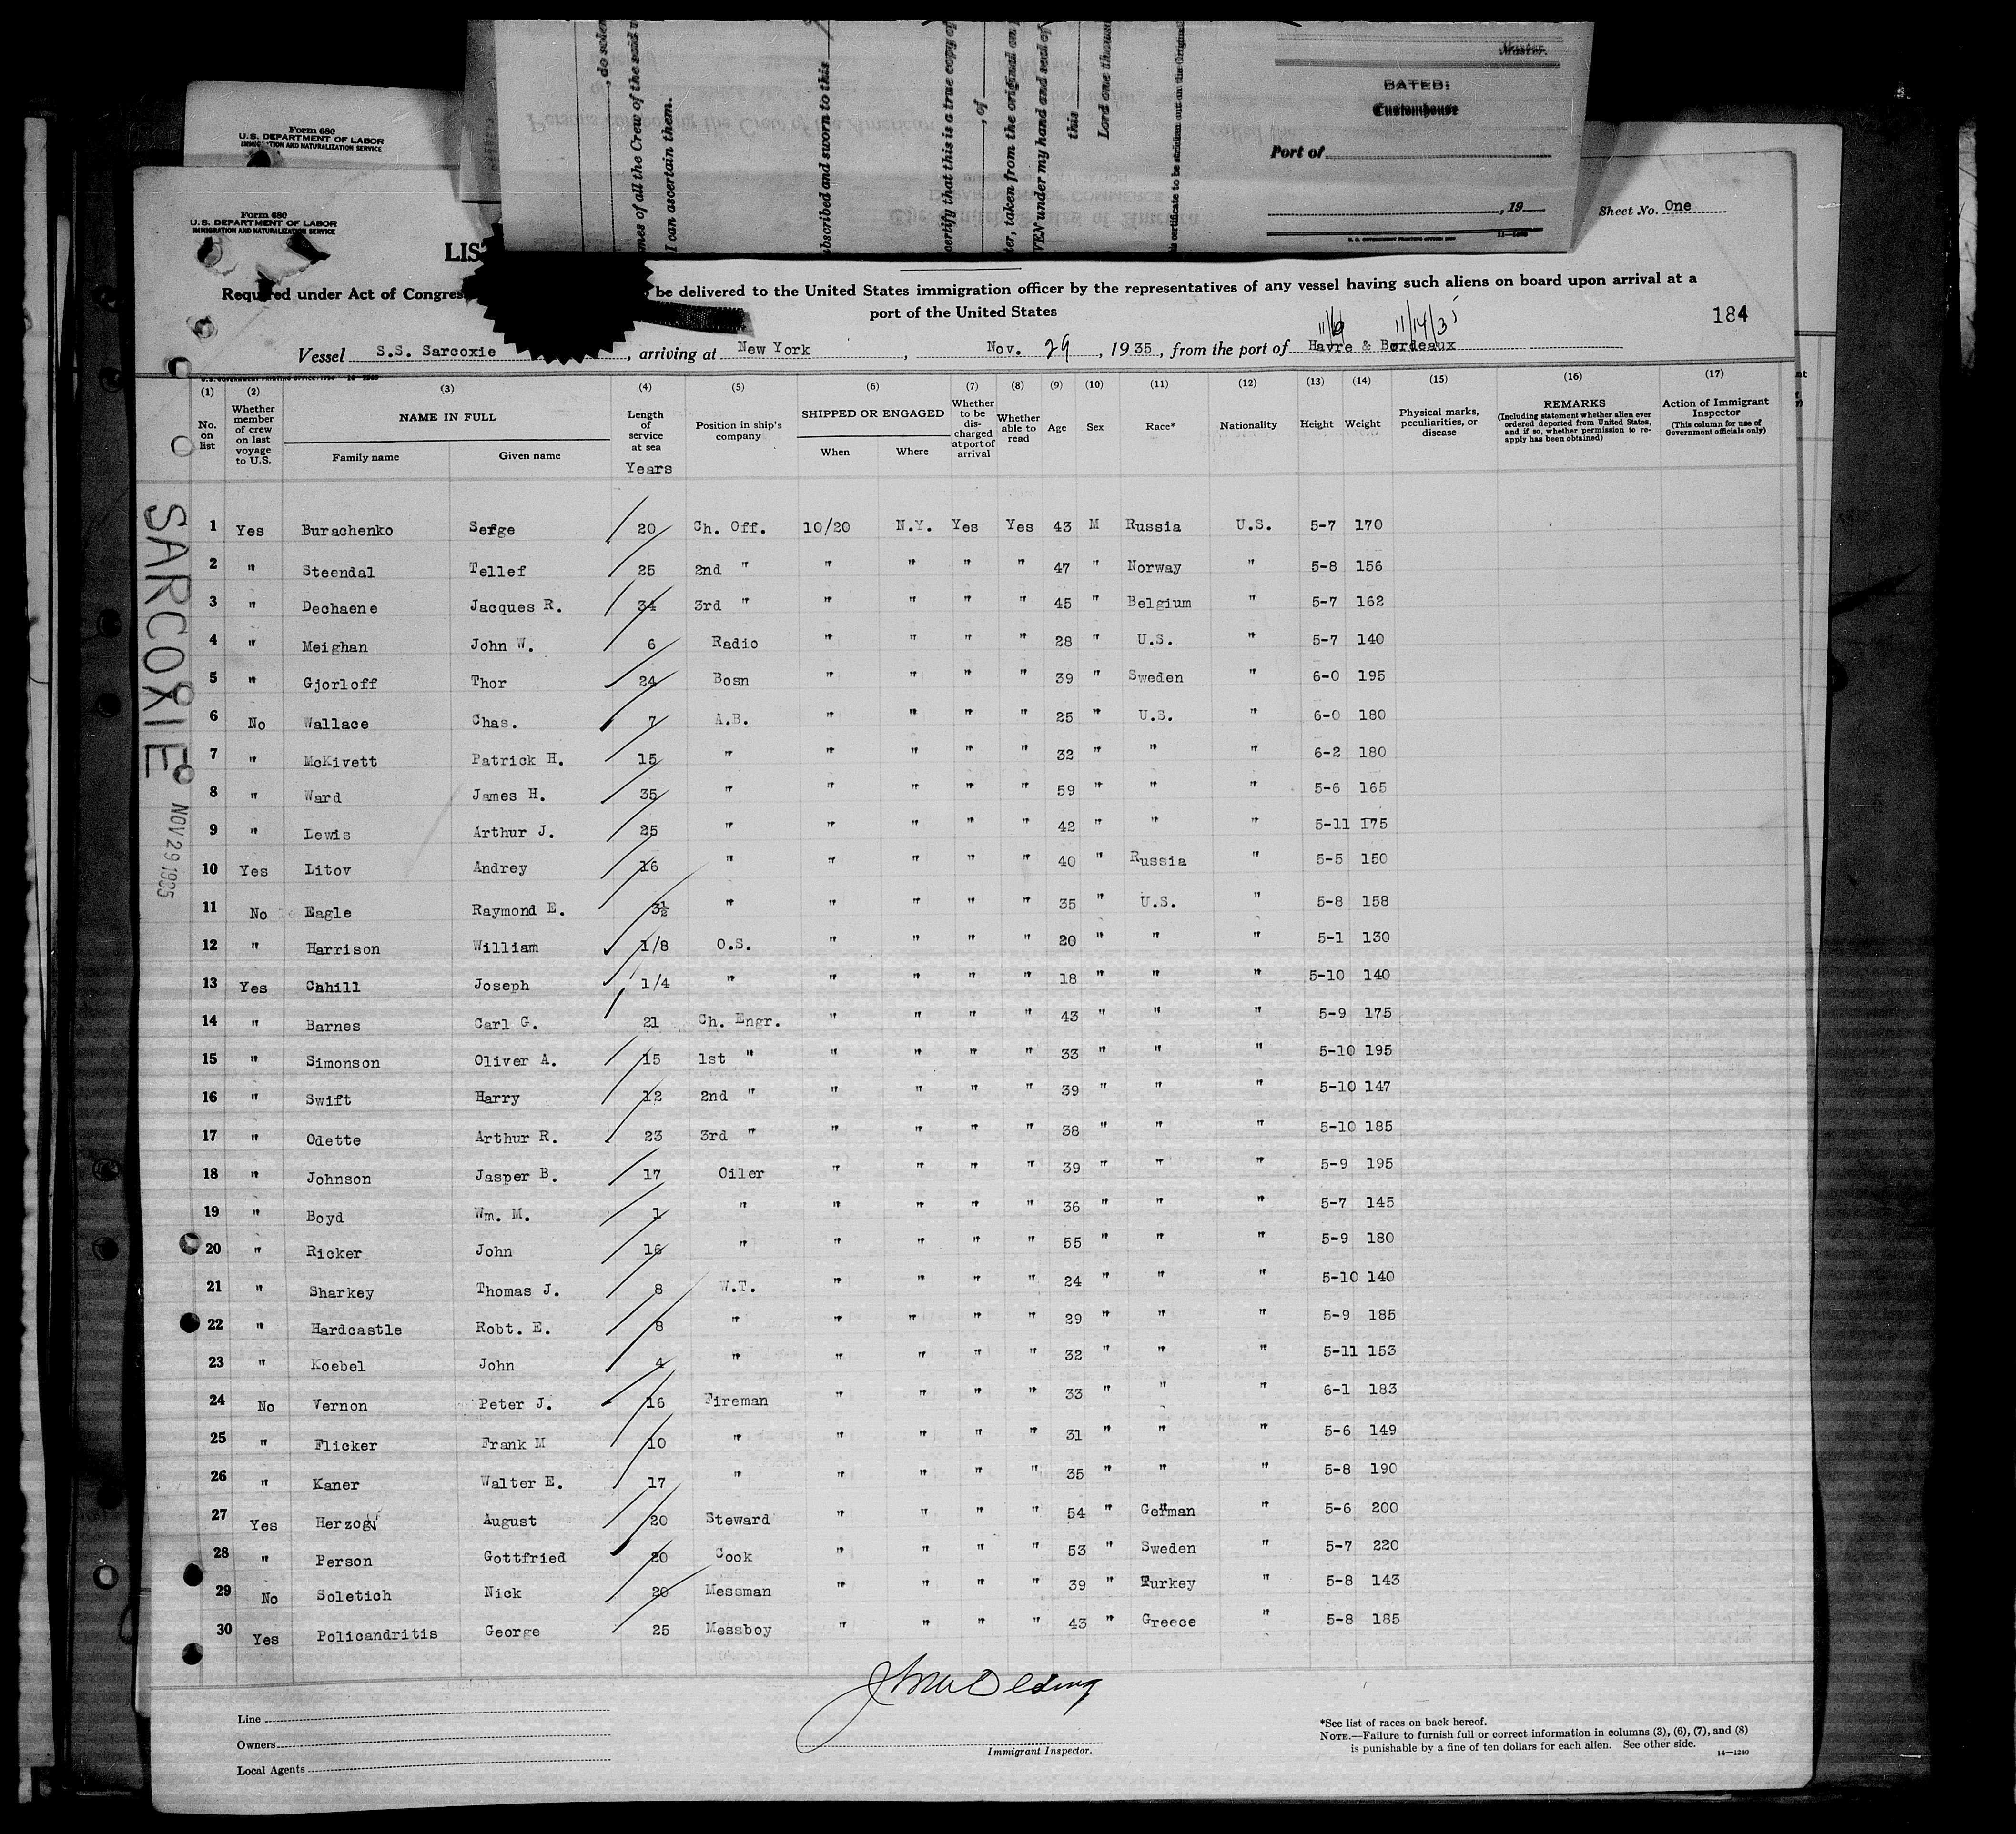 Form 680
U.S. DEPARTMENT OF LABOR
IMMIGRATION AND NATURALIZATION SERVICE
Form 680
U.S. DEPARTMENT OF LABOR
IMMIGRATION AND NATURALIZATION SERVICE
, do solem
mes of all the Crew of the said
I can ascertain them.
bscribed and sworn to this
certify that this is a true copy of
, of
ter, taken from the original on
VEN under my hand and seal of
this
Lord one thousa
is certificate to be stricken out on the Original
Master.
DATED:
Customhouse
Port of
, 19
Sheet No. One
LIS
Required under Act of Congres be delivered to the United States immigration officer by the representatives of any vessel having such aliens on board upon arrival at a
port of the United States
184
11/9 11/14/35
Vessel S.S. Sarcoxie , arriving at New York , Nov. 29 , 1935 , from the port of Havre & Bordeaux
(1) (2) (3) (4) (5) (6) (7) (8) (9) (10) (11) (12) (13) (14) (15) (16) (17)
No. on list
Whether member of crew on last voyage to U.S.
NAME IN FULL
Family name Given name
Length of service at sea
Years
Position in ship's company
SHIPPED OR ENGAGED
When Where
Whether to be discharged at port of arrival
Whether able to read
Age
Sex
Race*
Nationality
Height
Weight
Physical marks, peculiarities, or disease
REMARKS
(Including statement whether alien ever ordered deported from United States, and if so, whether permission to reapply has been obtained)
Action of Immigrant Inspector
(This column for use of Government officials only)
SARCOXIE
NOV 29 1935
1 Yes Burachenko Serge 20 Ch. Off. 10/20 N.Y. Yes Yes 43 M Russia U.S. 5-7 170
2 " Steendal Tellef 25 2nd " " " " " 47 " Norway " 5-8 156
3 " Dechaene Jacques R. 34 3rd " " " " " 45 " Belgium " 5-7 162
4 " Meighan John W. 6 Radio " " " " 28 " U.S. " 5-7 140
5 " Gjorloff Thor 24 Bosn " " " " 39 " Sweden " 6-0 195
6 No Wallace Chas. 7 A.B. " " " " 25 " U.S. " 6-0 180
7 " McKivett Patrick H. 15 " " " " " 32 " " " 6-2 180
8 " Ward James H. 35 " " " " " 59 " " " 5-6 165
9 " Lewis Arthur J. 25 " " " " " 42 " " " 5-11 175
10 Yes Litov Andrey 16 " " " " " 40 " Russia " 5-5 150
11 No Eagle Raymond E. 3½ " " " " " 35 " U.S. " 5-8 158
12 " Harrison William 1/8 O.S. " " " " 20 " " " 5-1 130
13 Yes Cahill Joseph 1/4 " " " " " 18 " " " 5-10 140
14 " Barnes Carl G. 21 Ch. Engr. " " " " 43 " " " 5-9 175
15 " Simonson Oliver A. 15 1st " " " " " 33 " " " 5-10 195
16 " Swift Harry 12 2nd " " " " " 39 " " " 5-10 147
17 " Odette Arthur R. 23 3rd " " " " " 38 " " " 5-10 185
18 " Johnson Jasper B. 17 Oiler " " " " 39 " " " 5-9 195
19 " Boyd Wm. M. 1 " " " " " 36 " " " 5-7 145
20 " Ricker John 16 " " " " " 55 " " " 5-9 180
21 " Sharkey Thomas J. 8 W.T. " " " " 24 " " " 5-10 140
22 " Hardcastle Robt. E. 8 " " " " " 29 " " " 5-9 185
23 " Koebel John 4 " " " " " 32 " " " 5-11 153
24 No Vernon Peter J. 16 Fireman " " " " 33 " " " 6-1 183
25 " Flicker Frank M 10 " " " " " 31 " " " 5-6 149
26 " Kaner Walter E. 17 " " " " " 35 " " " 5-8 190
27 Yes Herzog August 20 Steward " " " " 54 " German " 5-6 200
28 " Person Gottfried 20 Cook " " " " 53 " Sweden " 5-7 220
29 No Soletich Nick 20 Messman " " " " 39 " Turkey " 5-8 143
30 Yes Policandritis George 25 Messboy " " " " 43 " Greece " 5-8 185
Line
Owners
Local Agents
Immigrant Inspector.
*See list of races on back hereof.
NOTE.—Failure to furnish full or correct information in columns (3), (6), (7), and (8)
is punishable by a fine of ten dollars for each alien. See other side.
14—1240